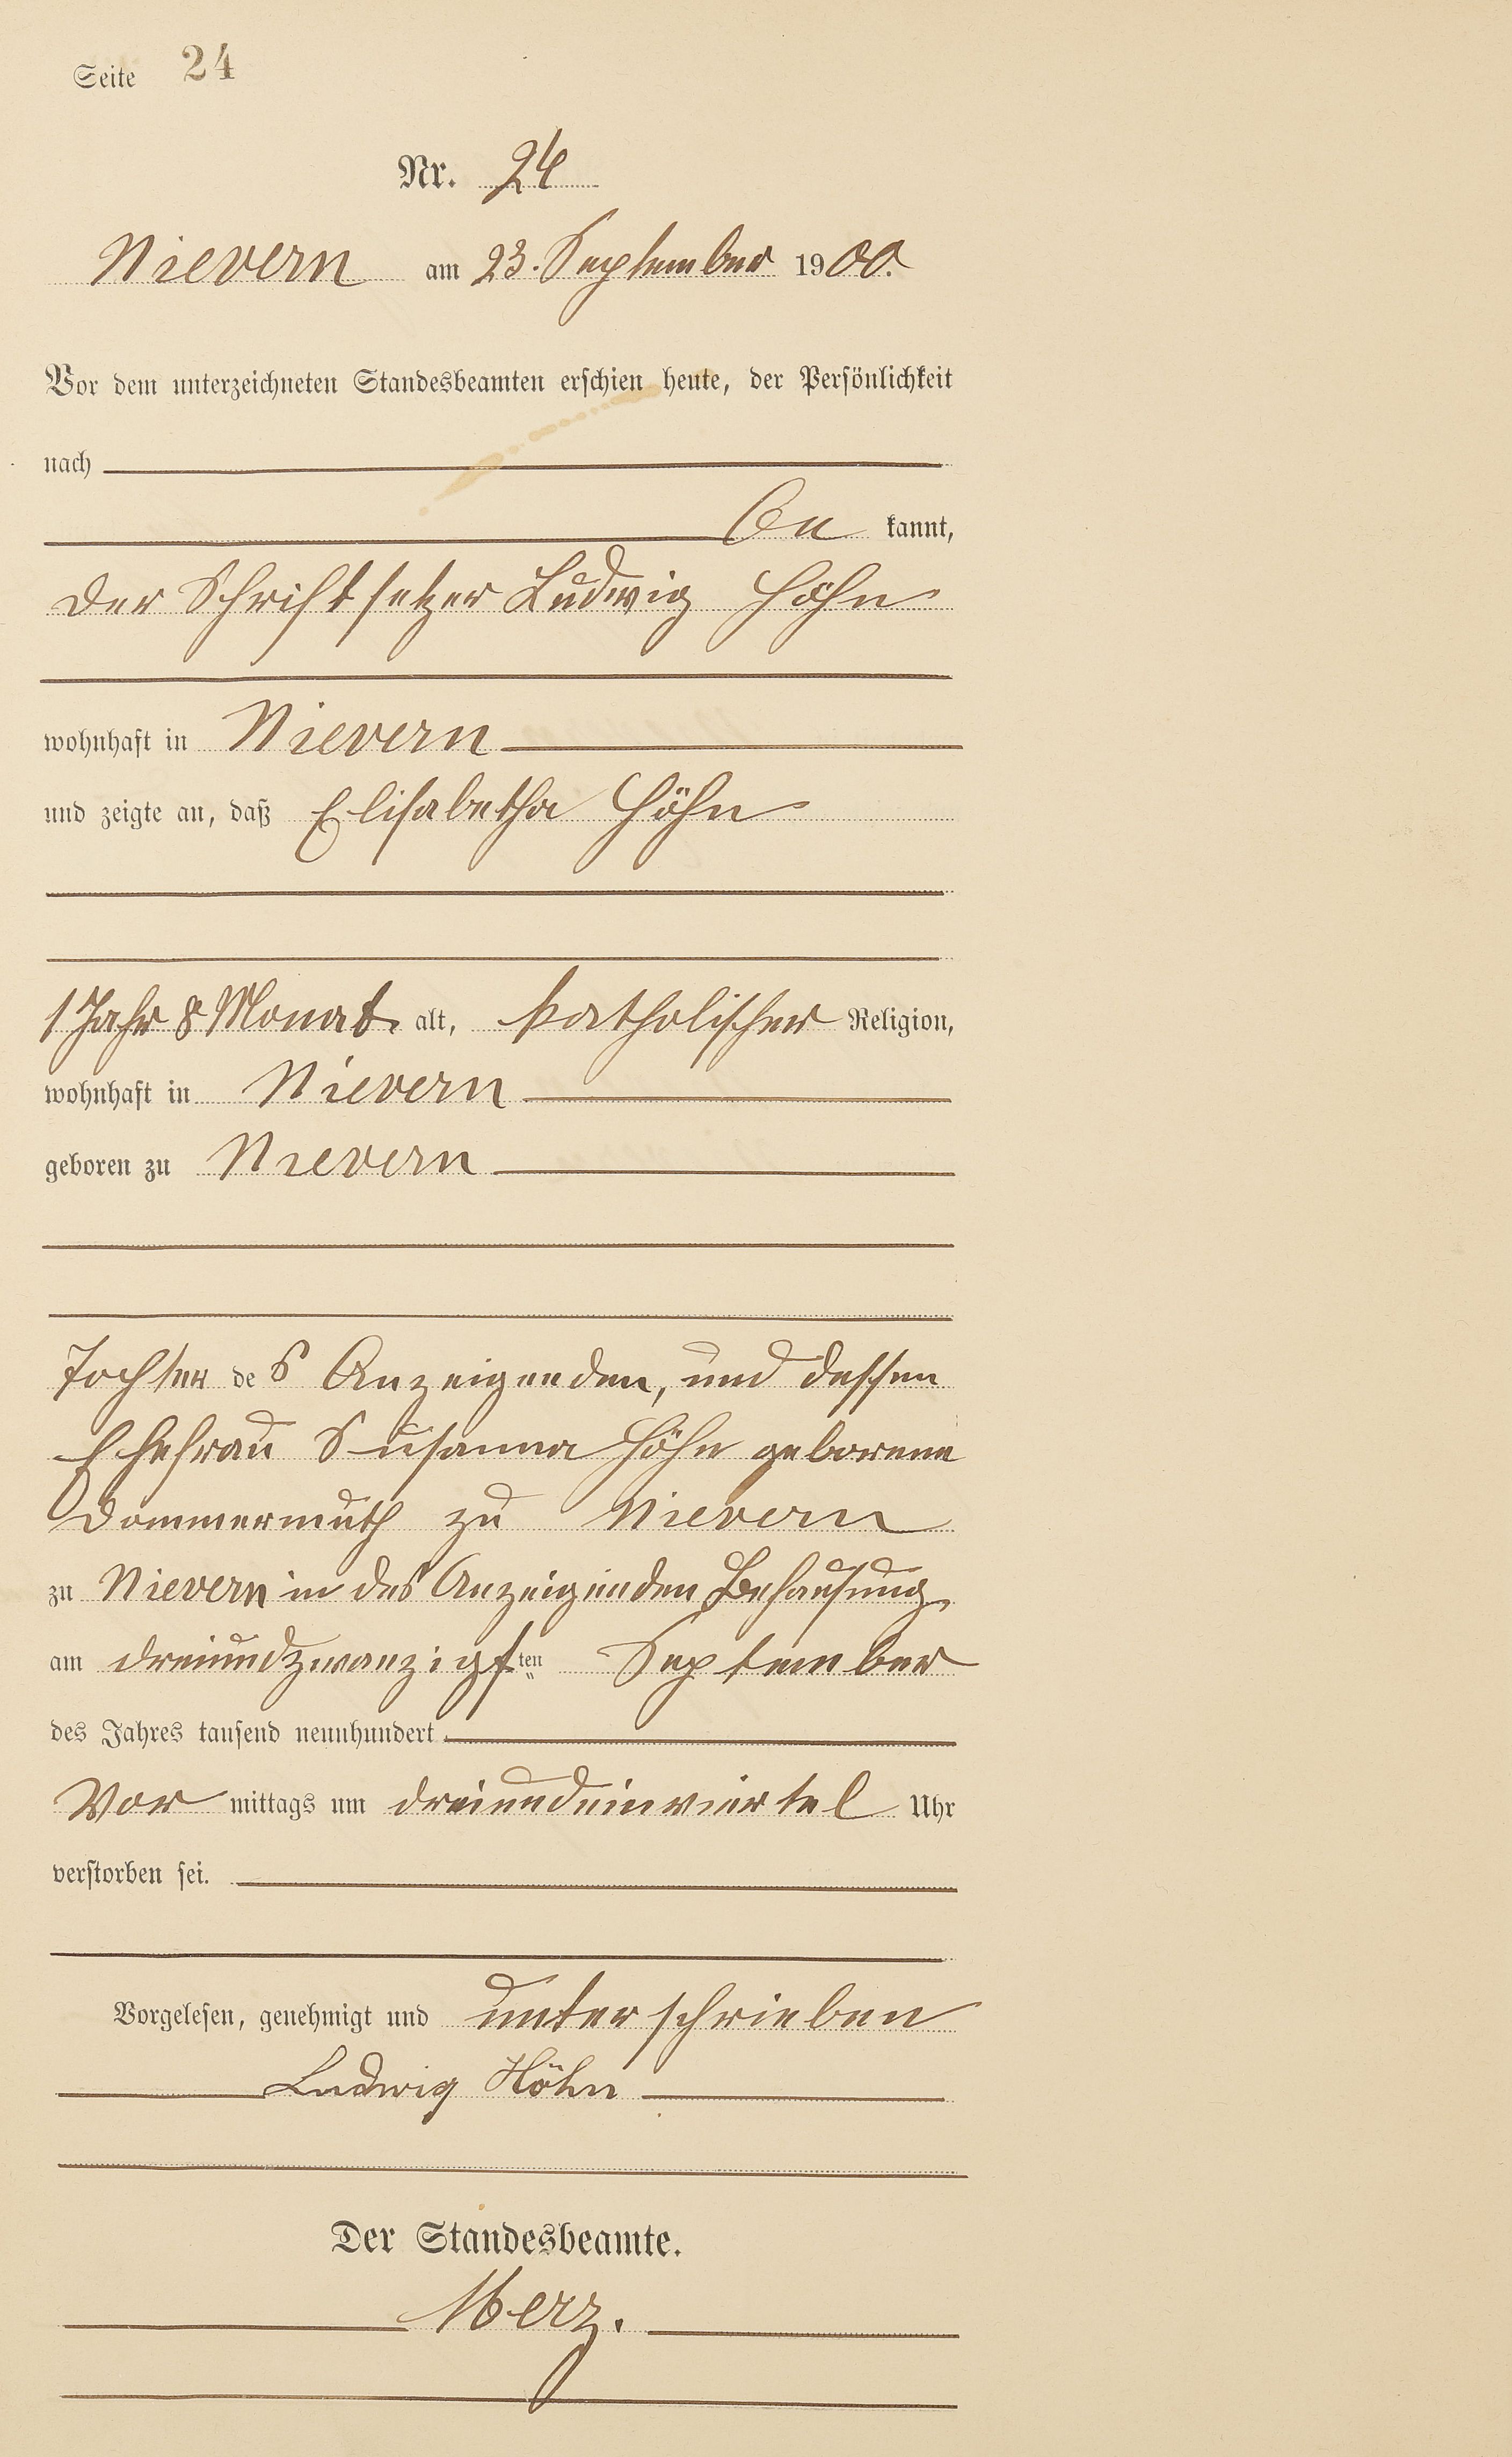 Seite 24
Nr. 24
Nievern am 23. September 1900.
Vor dem unterzeichneten Standesbeamten erschien heute, der Persönlichkeit
nach
be kannt,
der Schriftsetzer Ludwig Höhn
wohnhaft in Nievern
und zeigte an, daß Elisabetha Höhn
1 Jahr 8 Monat alt, katholischer Religion,
wohnhaft in Nievern
geboren zu Nievern
Tochter des Anzeigenden, und dessen
Ehefrau Susanna Höhn geborene
Dommermuth zu Nievern
zu Nievern in des Anzeigenden Behausung
am dreiundzwanzigsten September
des Jahres tausend neunhundert
Vor mittags um dreiundeinviertel Uhr
verstorben sei.
Vorgelesen, genehmigt und unterschrieben
Ludwig Höhn
Der Standesbeamte.